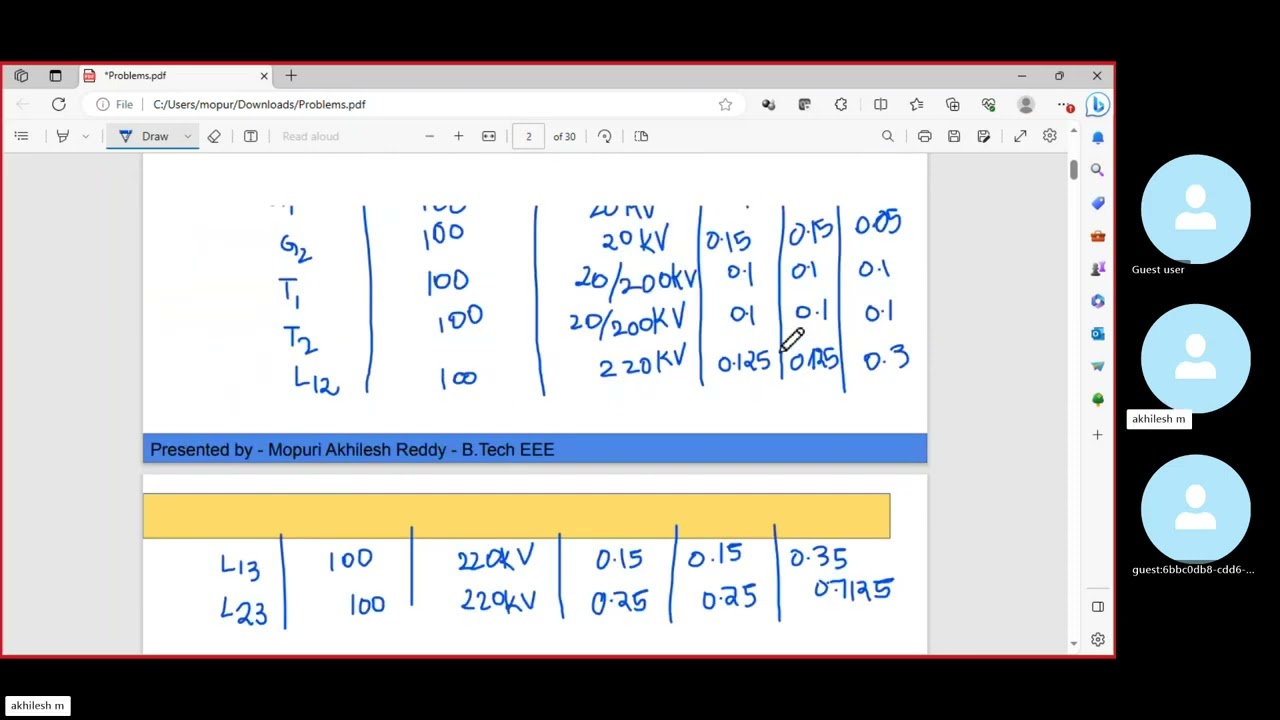 *Problems.pdf
File C:/Users/mopur/Downloads/Problems.pdf
Draw Read aloud 2 of 30
100 20 KV
G2 100 20 KV 0.15 0.15 0.05
T1 100 20/200KV 0.1 0.1 0.1
T2 100 20/200KV 0.1 0.1 0.1
L12 100 220KV 0.125 0.125 0.3
Presented by - Mopuri Akhilesh Reddy - B.Tech EEE
L13 100 220KV 0.15 0.15 0.35
L23 100 220KV 0.25 0.25 0.7125
Guest user
akhilesh m
guest:6bbc0db8-cdd6-...
akhilesh m